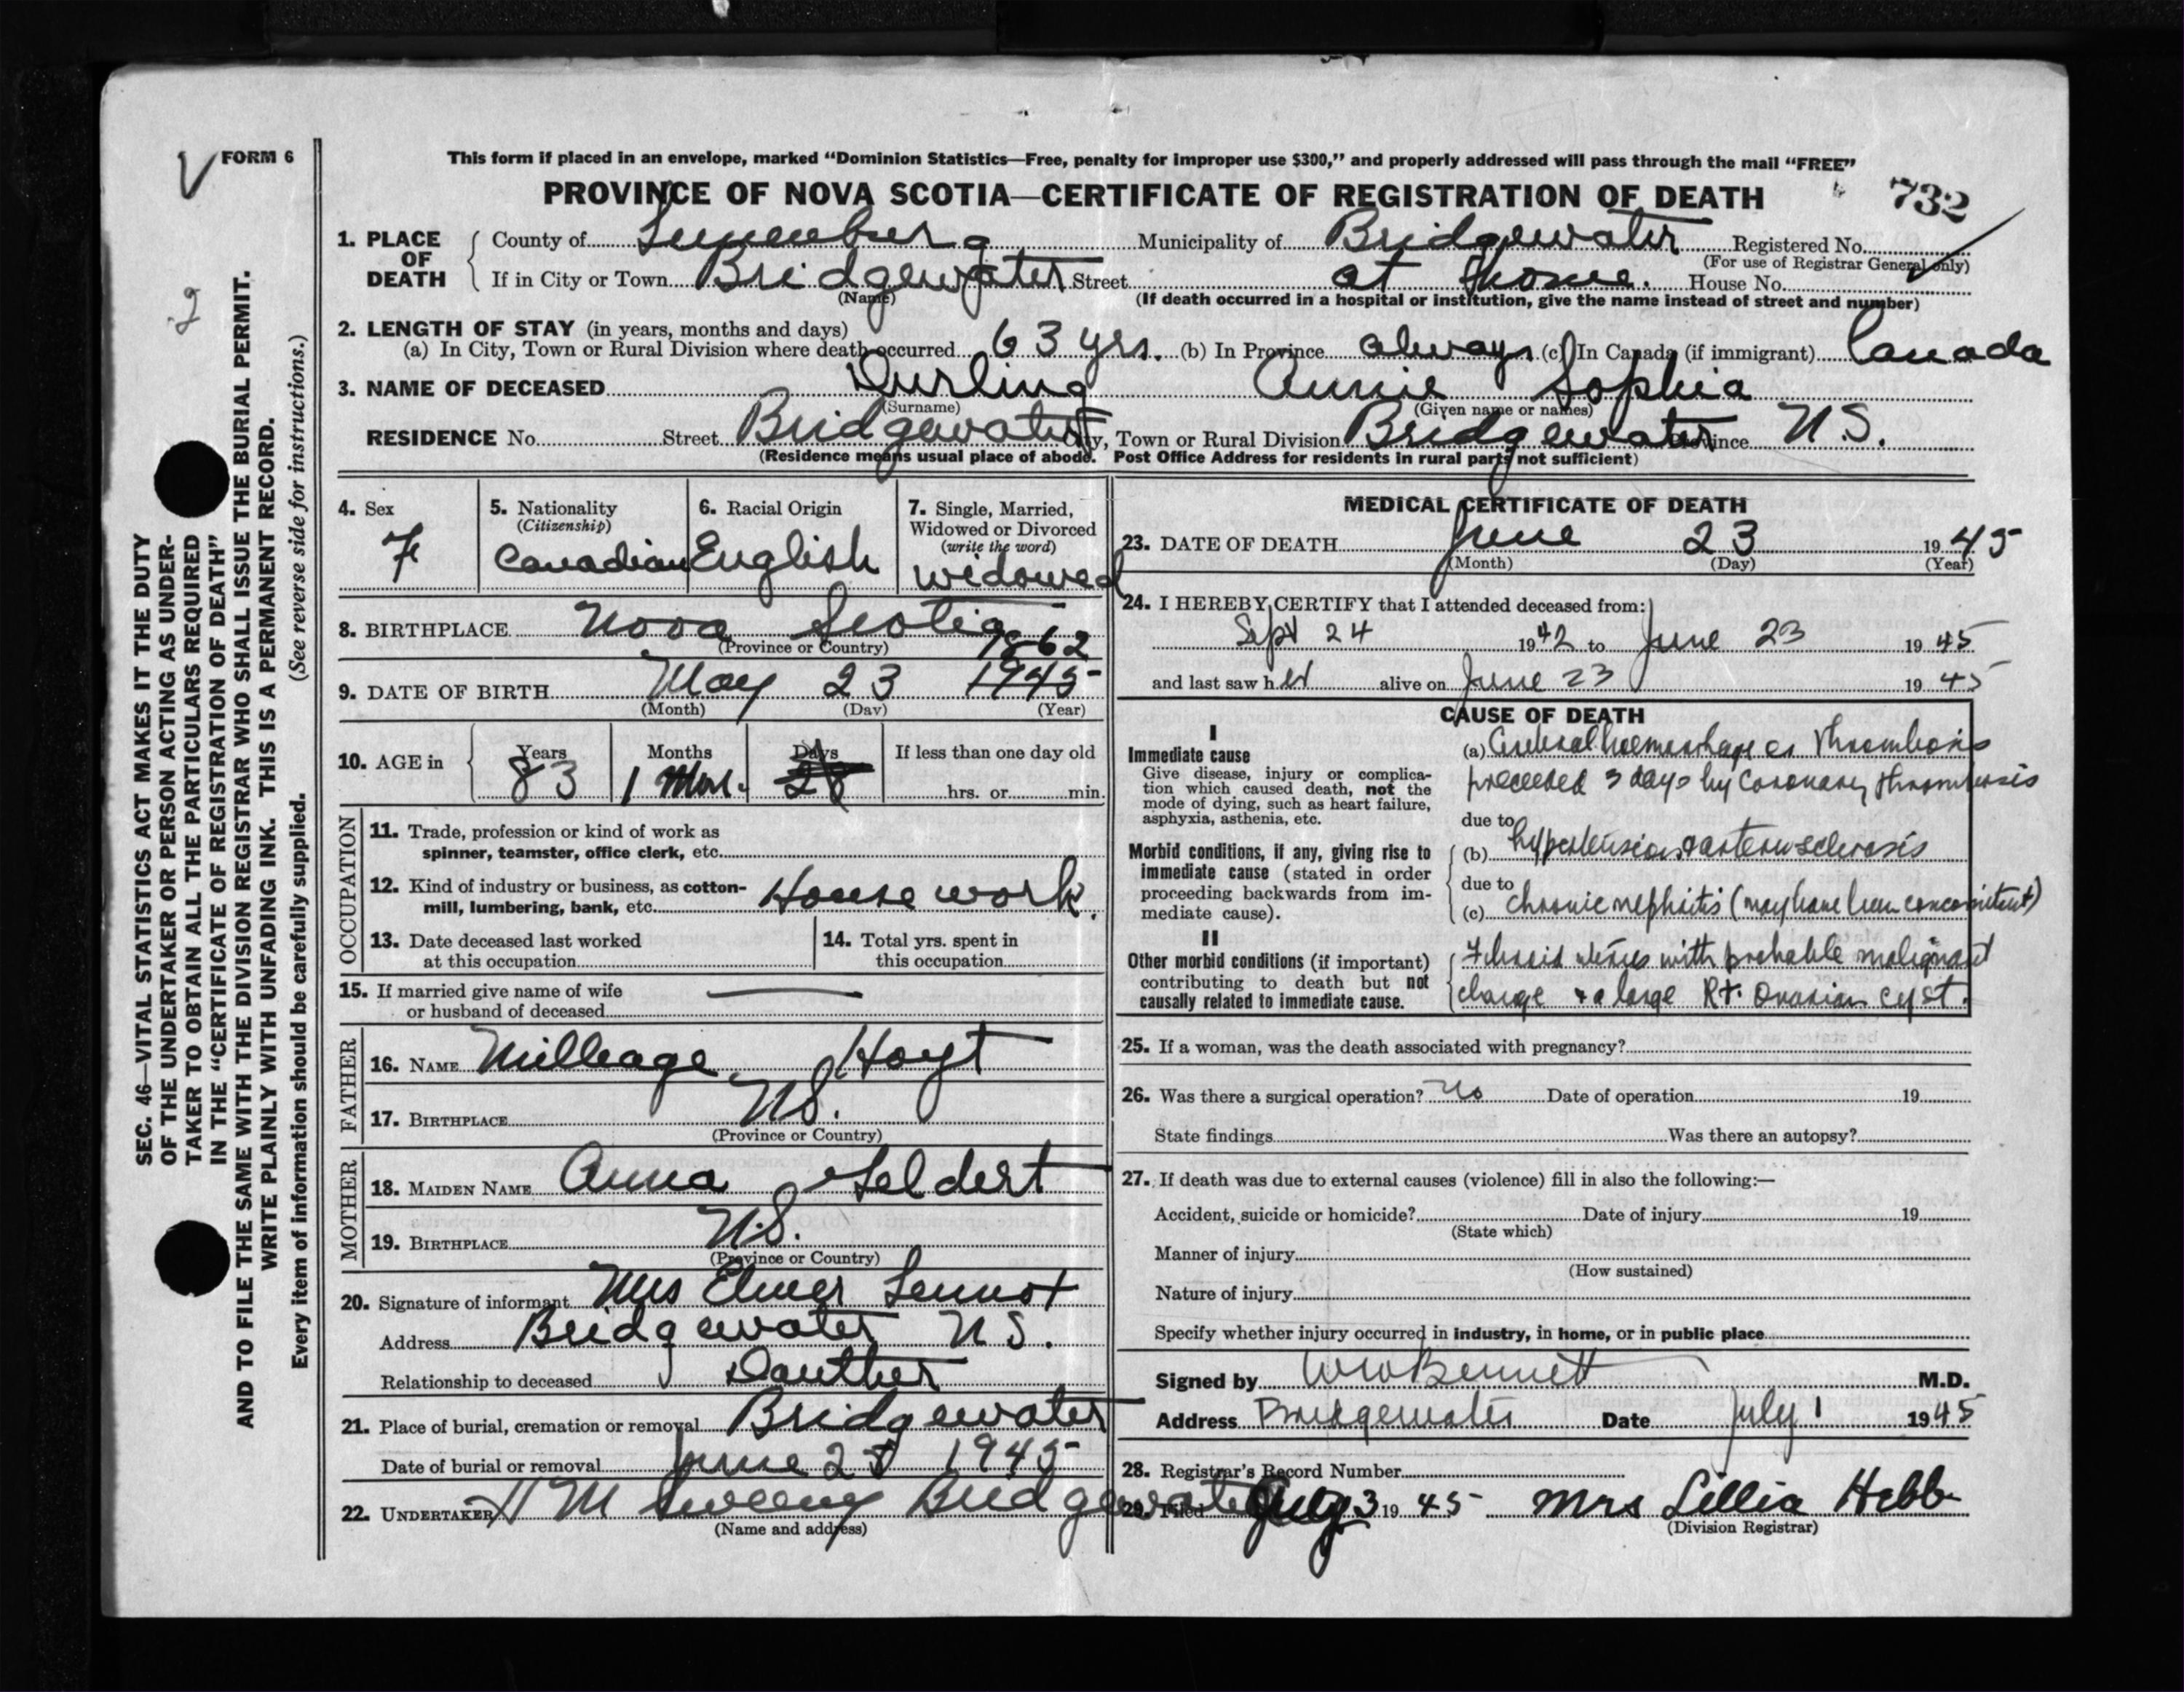 FORM 6
This form if placed in an envelope, marked "Dominion Statistics—Free, penalty for improper use $300," and properly addressed will pass through the mail "FREE"
PROVINCE OF NOVA SCOTIA—CERTIFICATE OF REGISTRATION OF DEATH
732
1. PLACE OF DEATH
County of Lunenburg Municipality of Bridgewater Registered No.
(For use of Registrar General only)
If in City or Town Bridgewater Street at Home. House No.
(Name) (If death occurred in a hospital or institution, give the name instead of street and number)
2. LENGTH OF STAY (in years, months and days)
(a) In City, Town or Rural Division where death occurred 63 yrs. (b) In Province always (c) In Canada (if immigrant) Canada
3. NAME OF DECEASED Durling Annie Sophia
(Surname) (Given name or names)
RESIDENCE No. Street Bridgewater City, Town or Rural Division Bridgewater Province N.S.
(Residence means usual place of abode. Post Office Address for residents in rural parts not sufficient)
4. Sex F
5. Nationality (Citizenship) Canadian
6. Racial Origin English
7. Single, Married, Widowed or Divorced (write the word) widowed
8. BIRTHPLACE Nova Scotia
(Province or Country)
1862
9. DATE OF BIRTH May 23 1945
(Month) (Day) (Year)
10. AGE in Years 83 Months 1 Mon. Days 28 If less than one day old
hrs. or min.
OCCUPATION
11. Trade, profession or kind of work as
spinner, teamster, office clerk, etc.
12. Kind of industry or business, as cotton-
mill, lumbering, bank, etc. House work.
13. Date deceased last worked
at this occupation
14. Total yrs. spent in
this occupation
15. If married give name of wife
or husband of deceased
FATHER
16. NAME Milleage Hoyt
17. BIRTHPLACE N.S.
(Province or Country)
MOTHER
18. MAIDEN NAME Anna Seldert
19. BIRTHPLACE N.S.
(Province or Country)
20. Signature of informant Mrs Elmer Lennox
Address Bridgewater N.S.
Relationship to deceased Dauther
21. Place of burial, cremation or removal Bridgewater
Date of burial or removal June 25 1945
22. UNDERTAKER H M Sweeny Bridgewater
(Name and address)
MEDICAL CERTIFICATE OF DEATH
23. DATE OF DEATH June 23 1945
(Month) (Day) (Year)
24. I HEREBY CERTIFY that I attended deceased from:
Sept 24 1942 to June 23 1945
and last saw her alive on June 23 1945
CAUSE OF DEATH
I
Immediate cause
Give disease, injury or complica-
tion which caused death, not the
mode of dying, such as heart failure,
asphyxia, asthenia, etc.
(a) Cerebral haemorrhage or thrombosis
preceeded 3 days by Coronary thrombosis
due to
Morbid conditions, if any, giving rise to
immediate cause (stated in order
proceeding backwards from im-
mediate cause).
(b) hypertension & arteriosclerosis
due to
(c) chronic nephritis (may have been concomitant)
II
Other morbid conditions (if important)
contributing to death but not
causally related to immediate cause.
Fibroid uterus with probable malignant
change & a large Rt. Ovarian cyst.
25. If a woman, was the death associated with pregnancy?
26. Was there a surgical operation? No Date of operation 19
State findings Was there an autopsy?
27. If death was due to external causes (violence) fill in also the following:—
Accident, suicide or homicide? Date of injury 19
(State which)
Manner of injury
(How sustained)
Nature of injury
Specify whether injury occurred in industry, in home, or in public place
Signed by W W Bennett M.D.
Address Bridgewater Date July 1 1945
28. Registrar's Record Number
29. Filed July 3 1945 Mrs Lillia Hebb
(Division Registrar)
SEC. 46—VITAL STATISTICS ACT MAKES IT THE DUTY
OF THE UNDERTAKER OR PERSON ACTING AS UNDER-
TAKER TO OBTAIN ALL THE PARTICULARS REQUIRED
IN THE "CERTIFICATE OF REGISTRATION OF DEATH"
AND TO FILE THE SAME WITH THE DIVISION REGISTRAR WHO SHALL ISSUE THE BURIAL PERMIT.
WRITE PLAINLY WITH UNFADING INK. THIS IS A PERMANENT RECORD.
Every item of information should be carefully supplied. (See reverse side for instructions.)
2